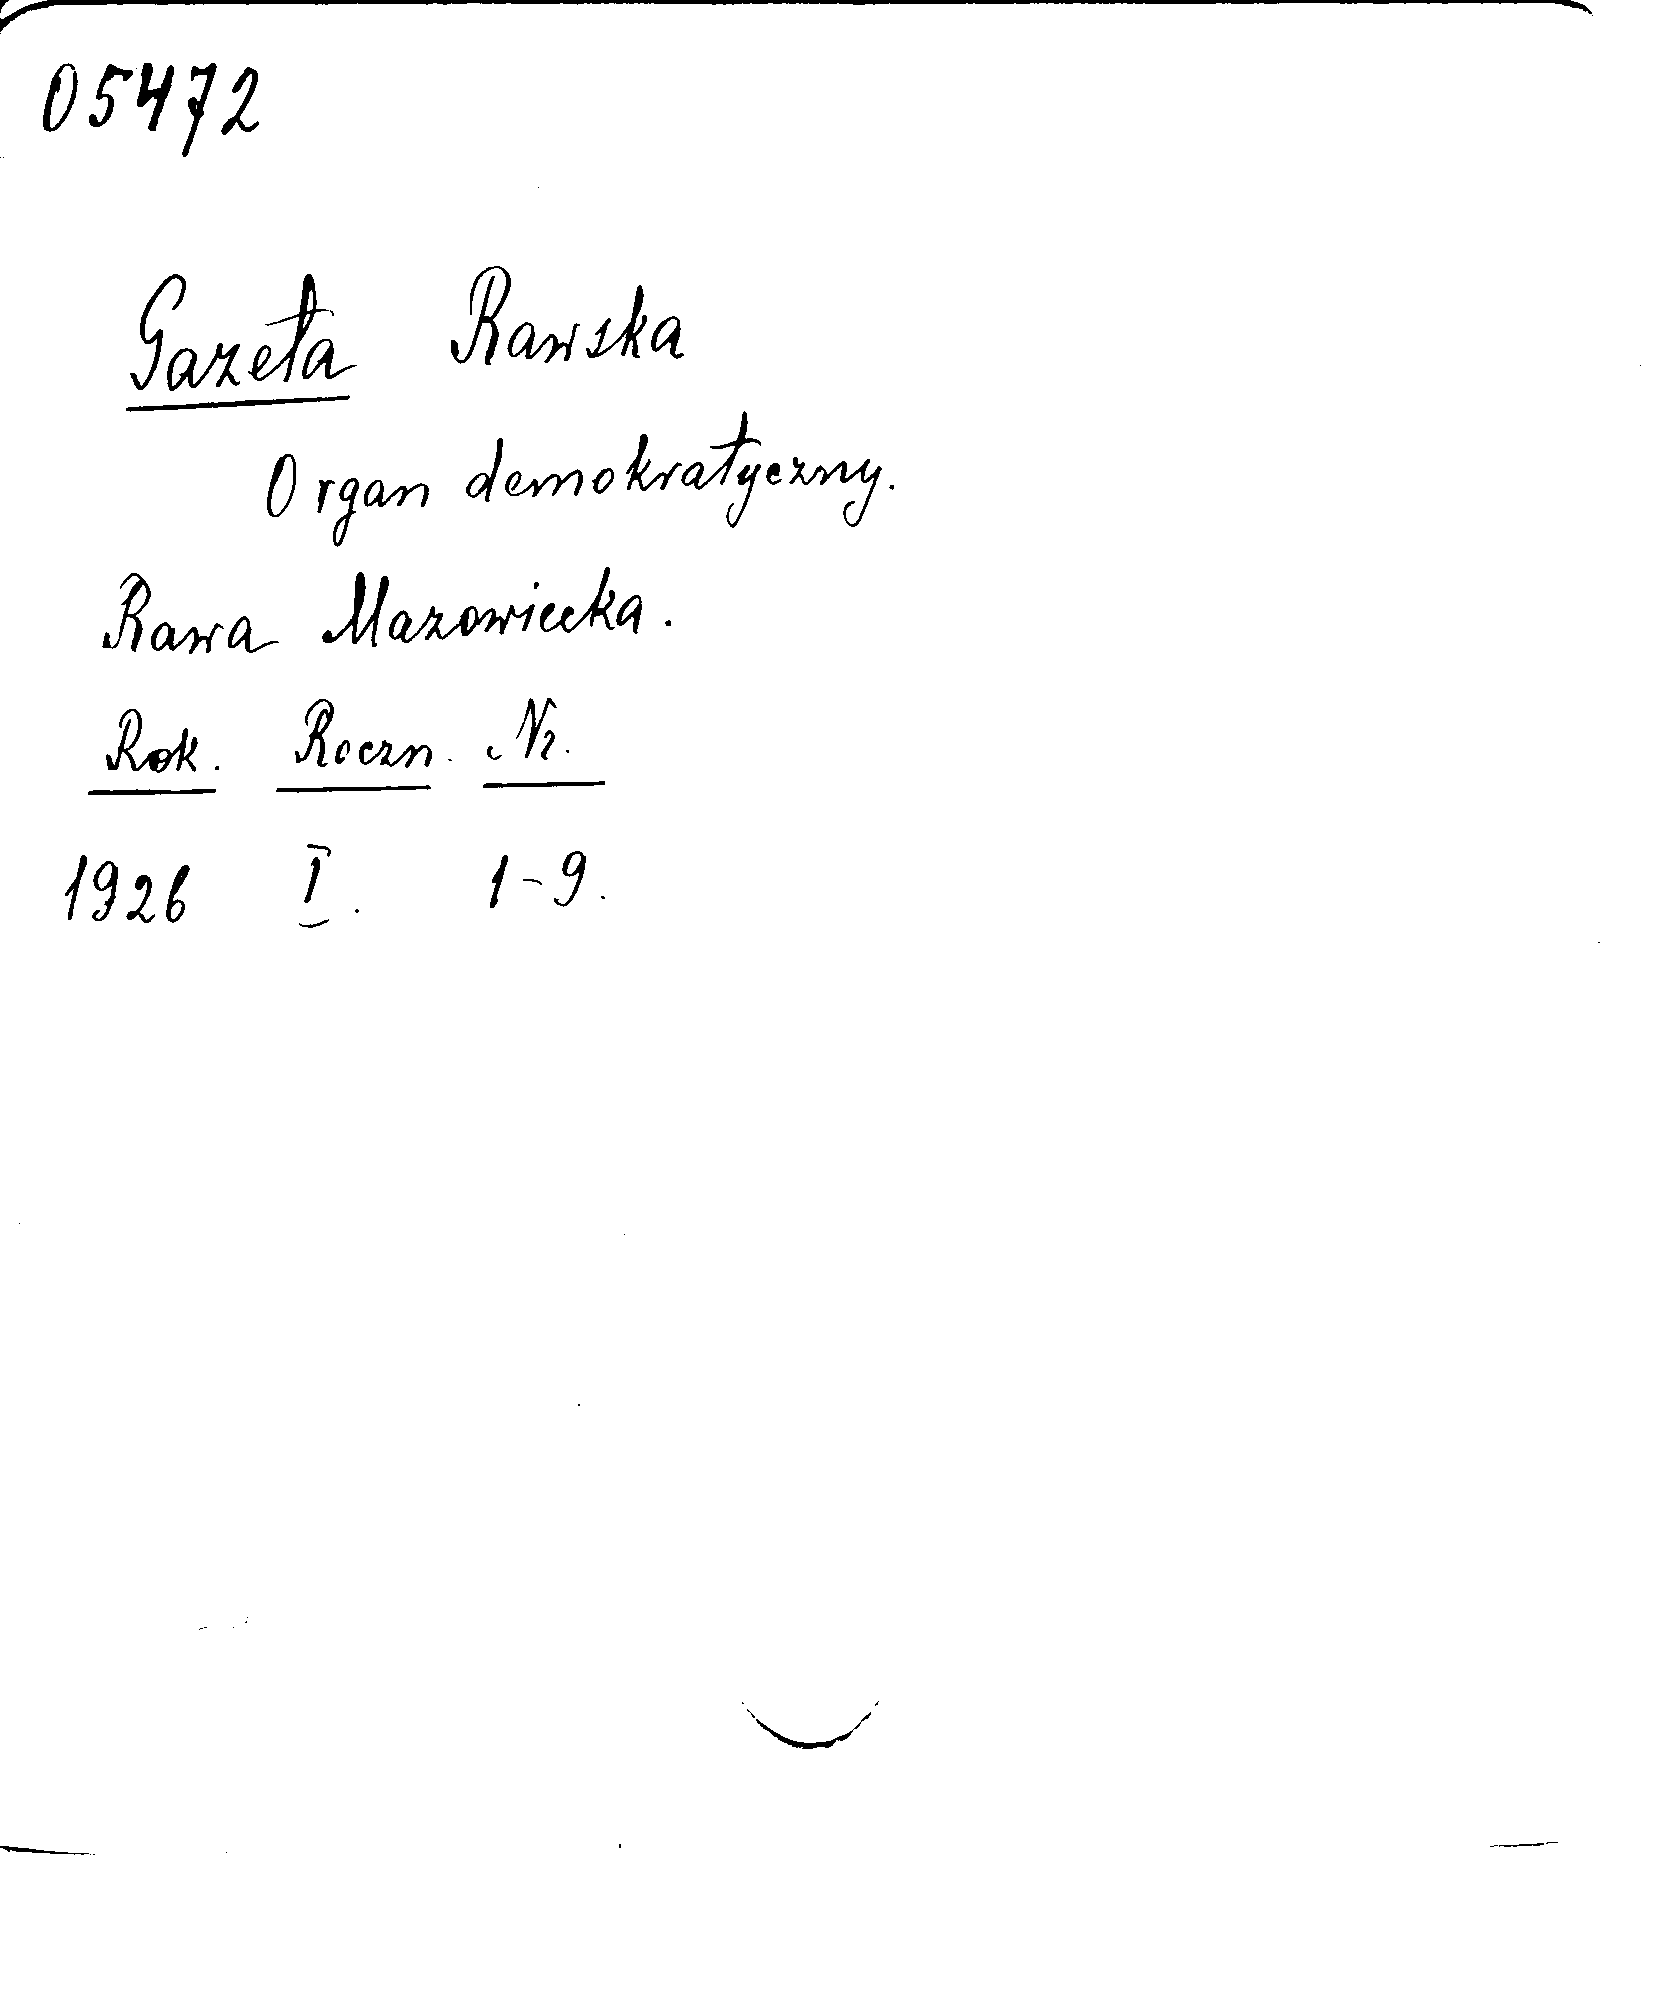 05472
Gazeta Rawska
Organ demokratyczny.
Rawa Mazowiecka.
Rok. Roczn. Nr.
1926 I. 1-9.